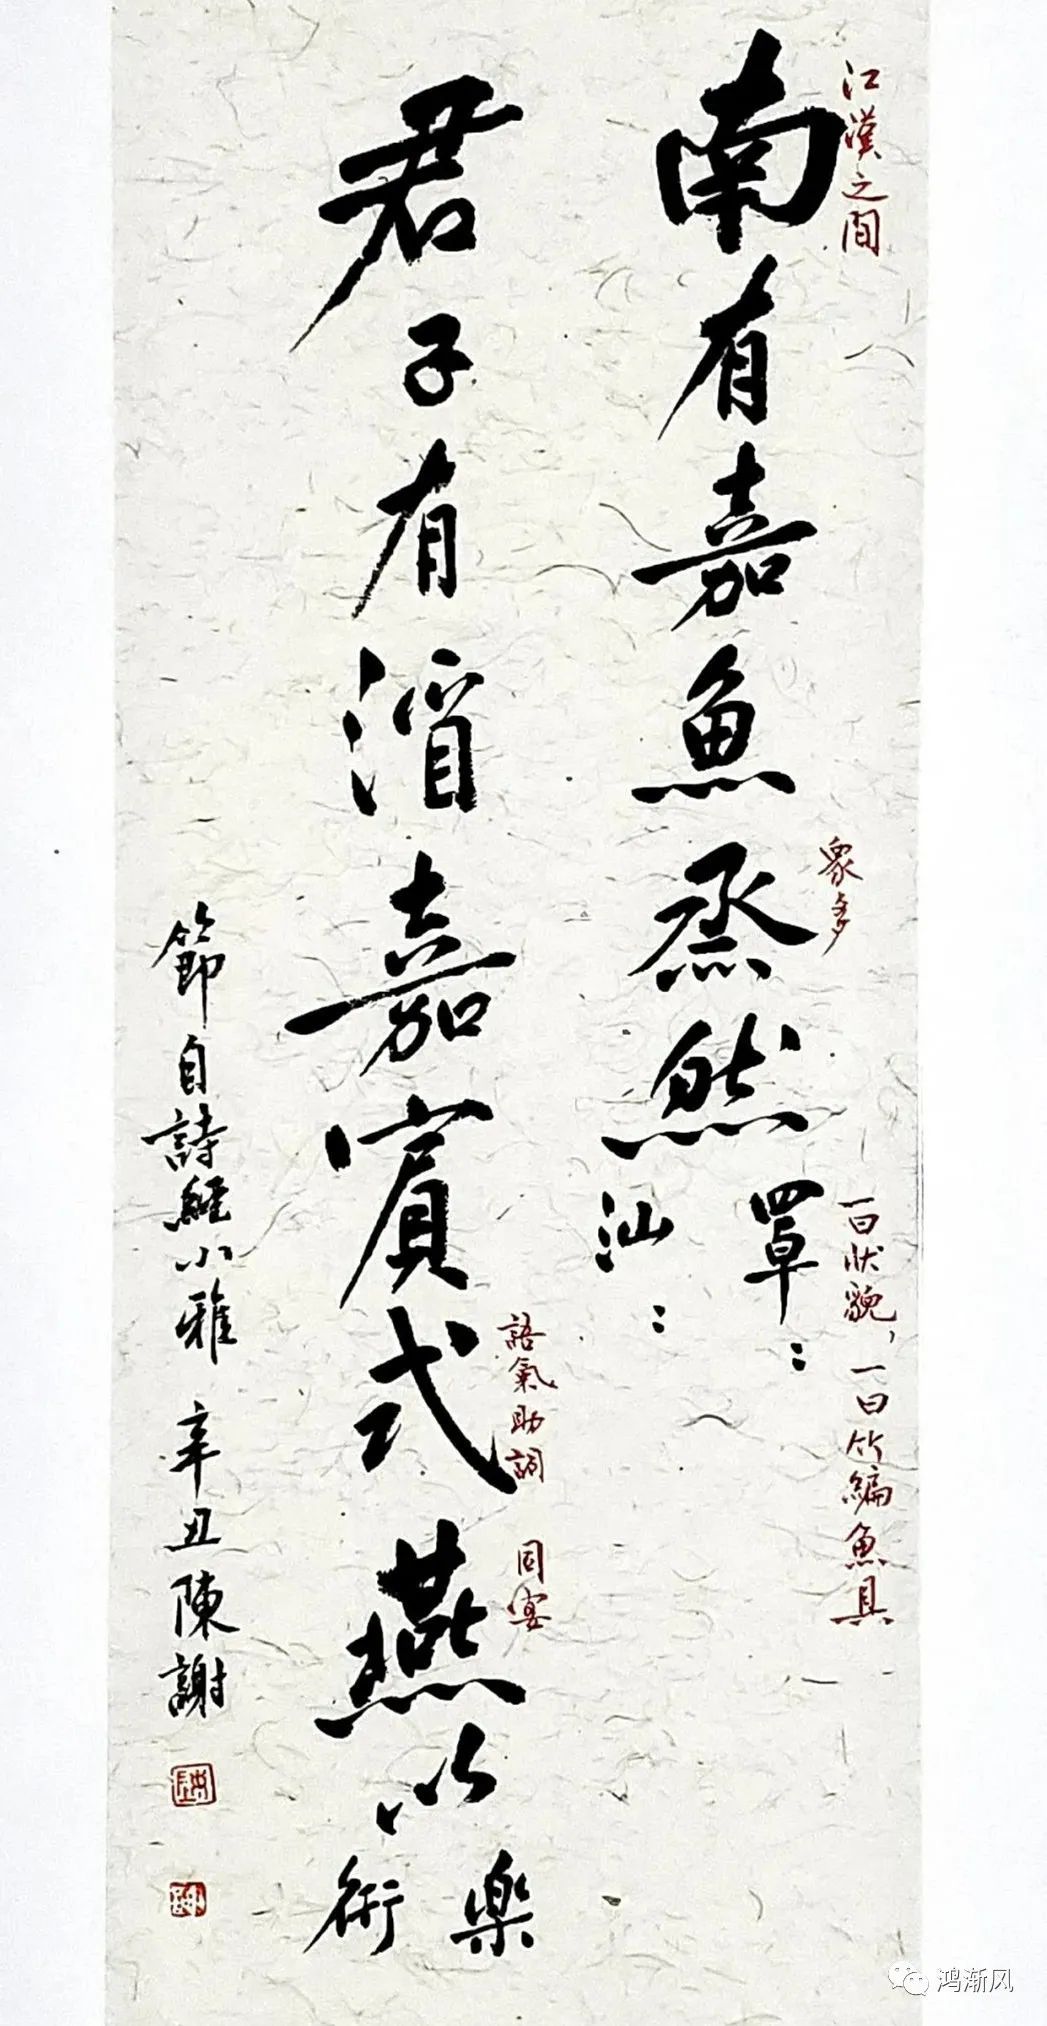 江漢之間
衆多
一曰狀貌，一曰竹編魚具
南有嘉魚烝然罩：
汕：
語氣助詞
同宴
君子有酒嘉賓式燕以樂
衎
節自詩經小雅 辛丑陳謝
鸿渐风